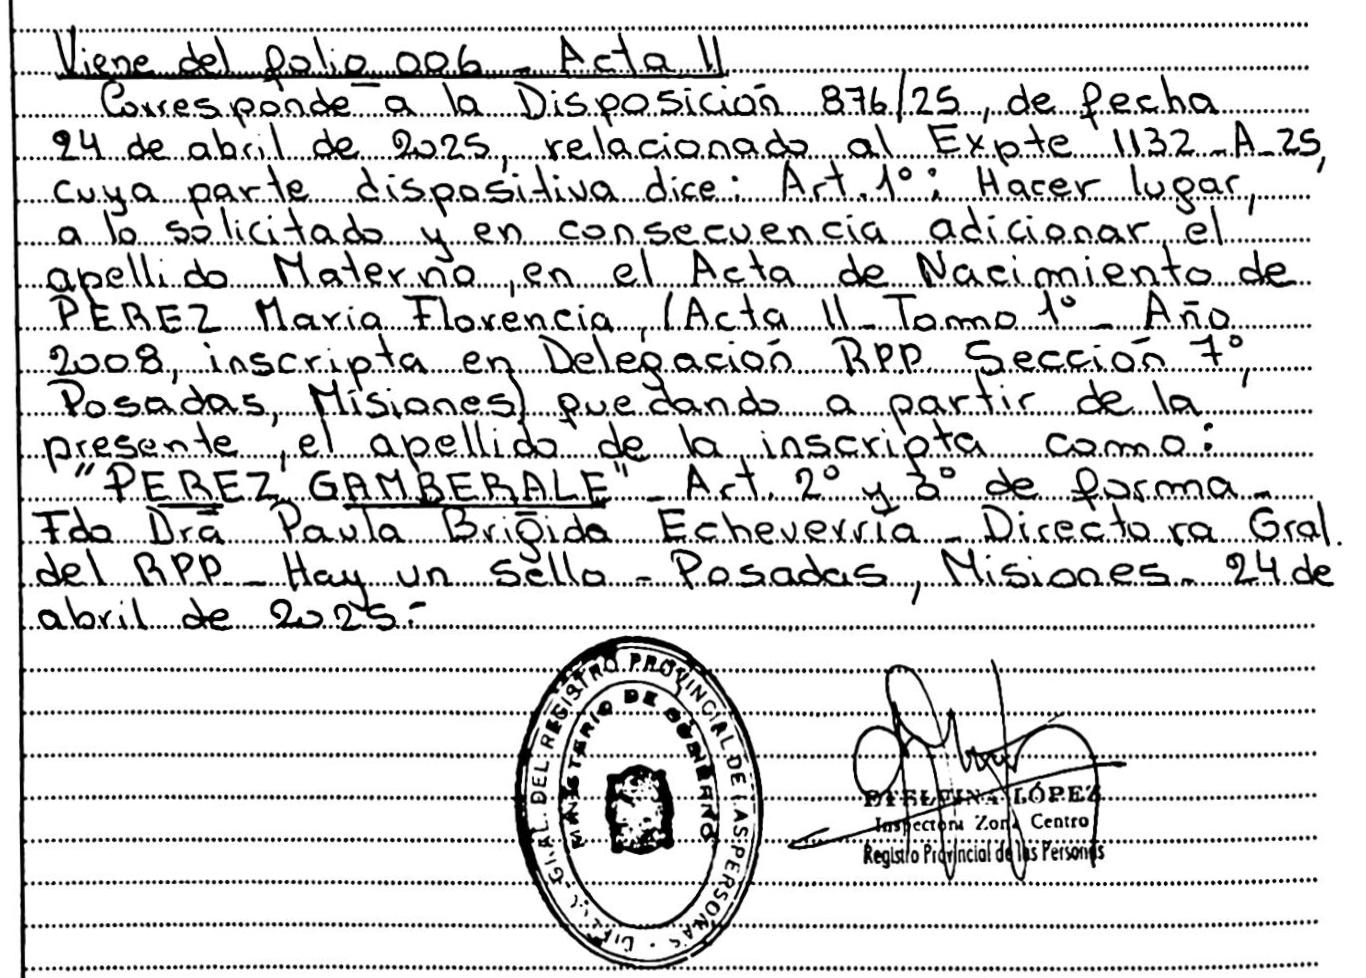 Viene del folio 006 - Acta 11
Corresponde a la Disposición 876/25, de fecha
24 de abril de 2025, relacionado al Expte 1132-A-25,
cuya parte dispositiva dice: Art. 1°: Hacer lugar,
a lo solicitado y en consecuencia adicionar el
apellido Materno, en el Acta de Nacimiento de
PEREZ Maria Florencia, (Acta 11 - Tomo 1° - Año
2008, inscripta en Delegación RPP Sección 7°,
Posadas, Misiones) quedando a partir de la
presente, el apellido de la inscripta como:
"PEREZ GAMBERALE" - Art. 2° y 3° de forma -
Fdo Dra Paula Brigida Echeverría - Directora Gral.
del RPP - Hay un sello - Posadas, Misiones - 24 de
abril de 2025.-
GRAL. DEL REGISTRO PROVINCIAL DE LAS PERSONAS
MINISTERIO DE GOBIERNO
LÓPEZ
Inspectora Zona Centro
Registro Provincial de las Personas